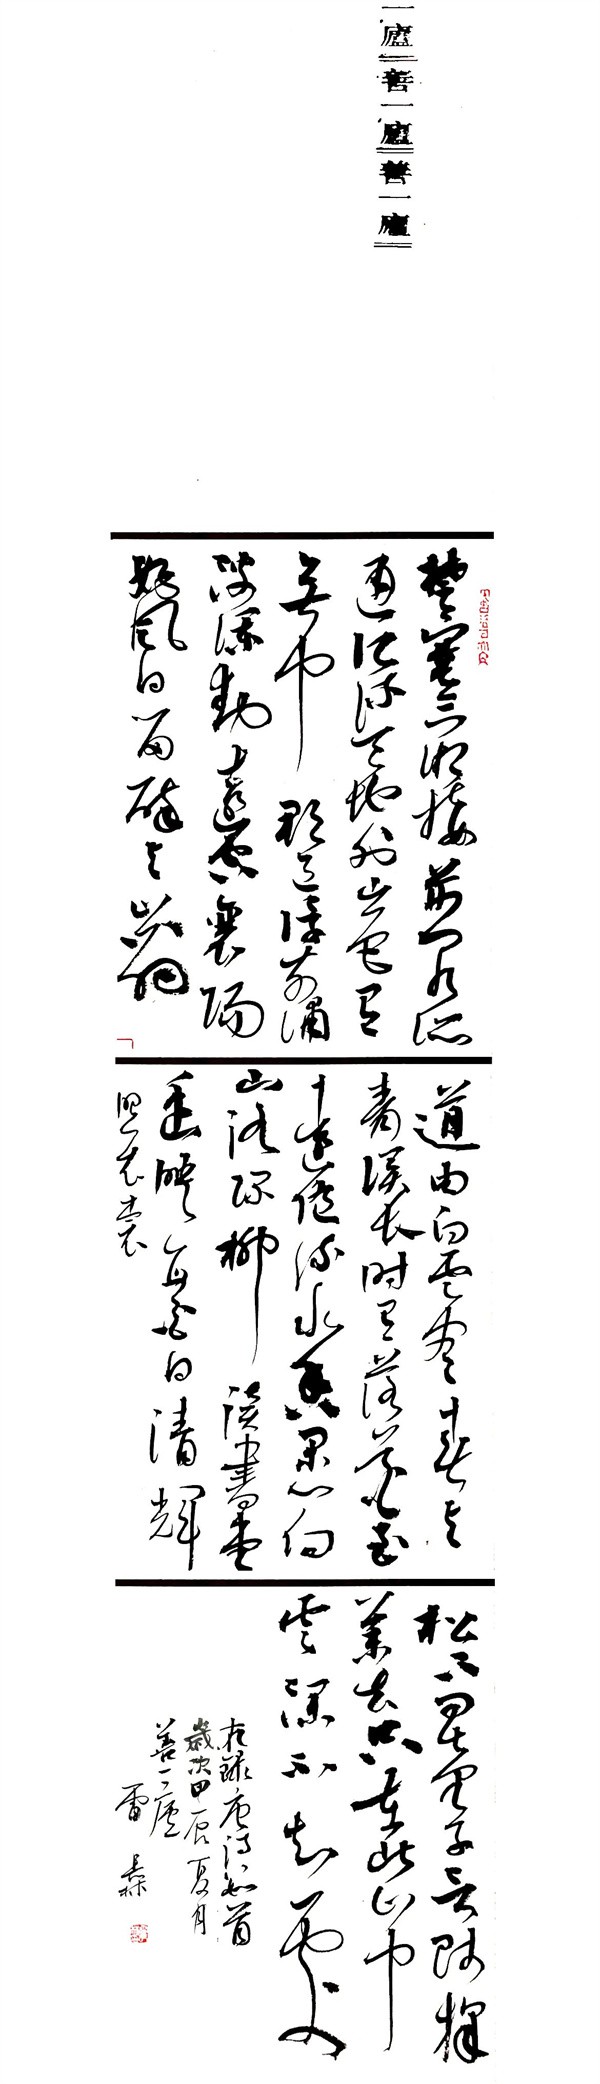 一廬善一廬善一廬
楚塞三湘接荊門九派
通江流天地外山色有
無中郡邑浮前浦
波瀾動遠空襄陽
好風日留醉与山翁
道由白雲盡春与
青溪長時有落花至
遠隨流水香閑門向
山路深柳讀書堂
幽映每白日清輝
照衣裳
松下問童子言師採
藥去只在此山中
雲深不知處
右錄唐詩首
歲次甲辰夏月
善一廬
雷森